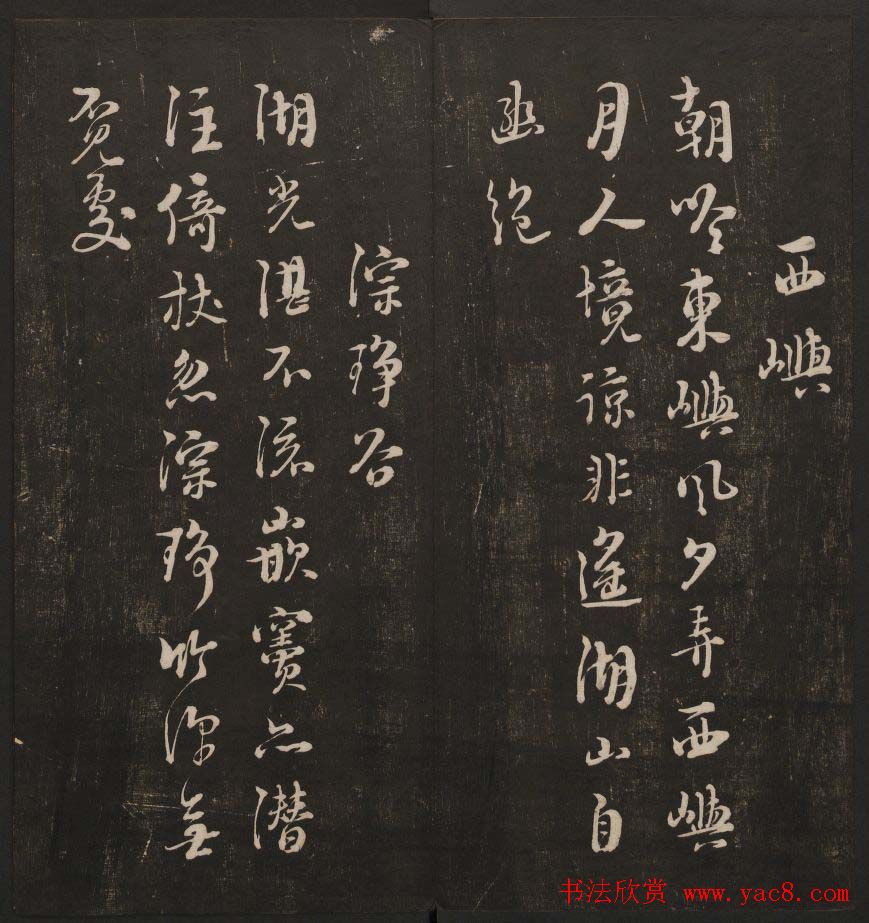 西嶼
朝吟東嶼風夕弄西嶼
月人境諒非遙湖山自
幽絕
淙琤谷
湖光湛不流嵌竇亦潛
注倚杖忽淙琤竹深無
覓處
书法欣赏 www.yac8.com